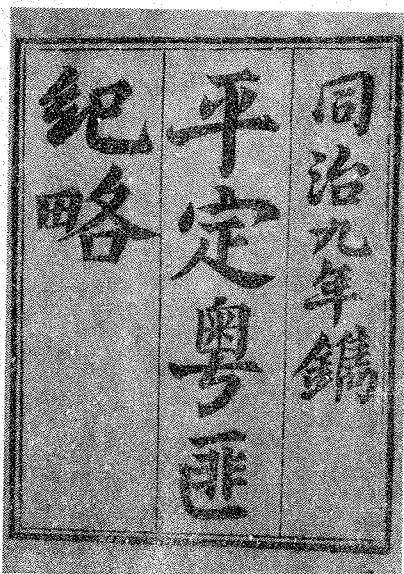 同治九年鐫
平定粵匪
紀略